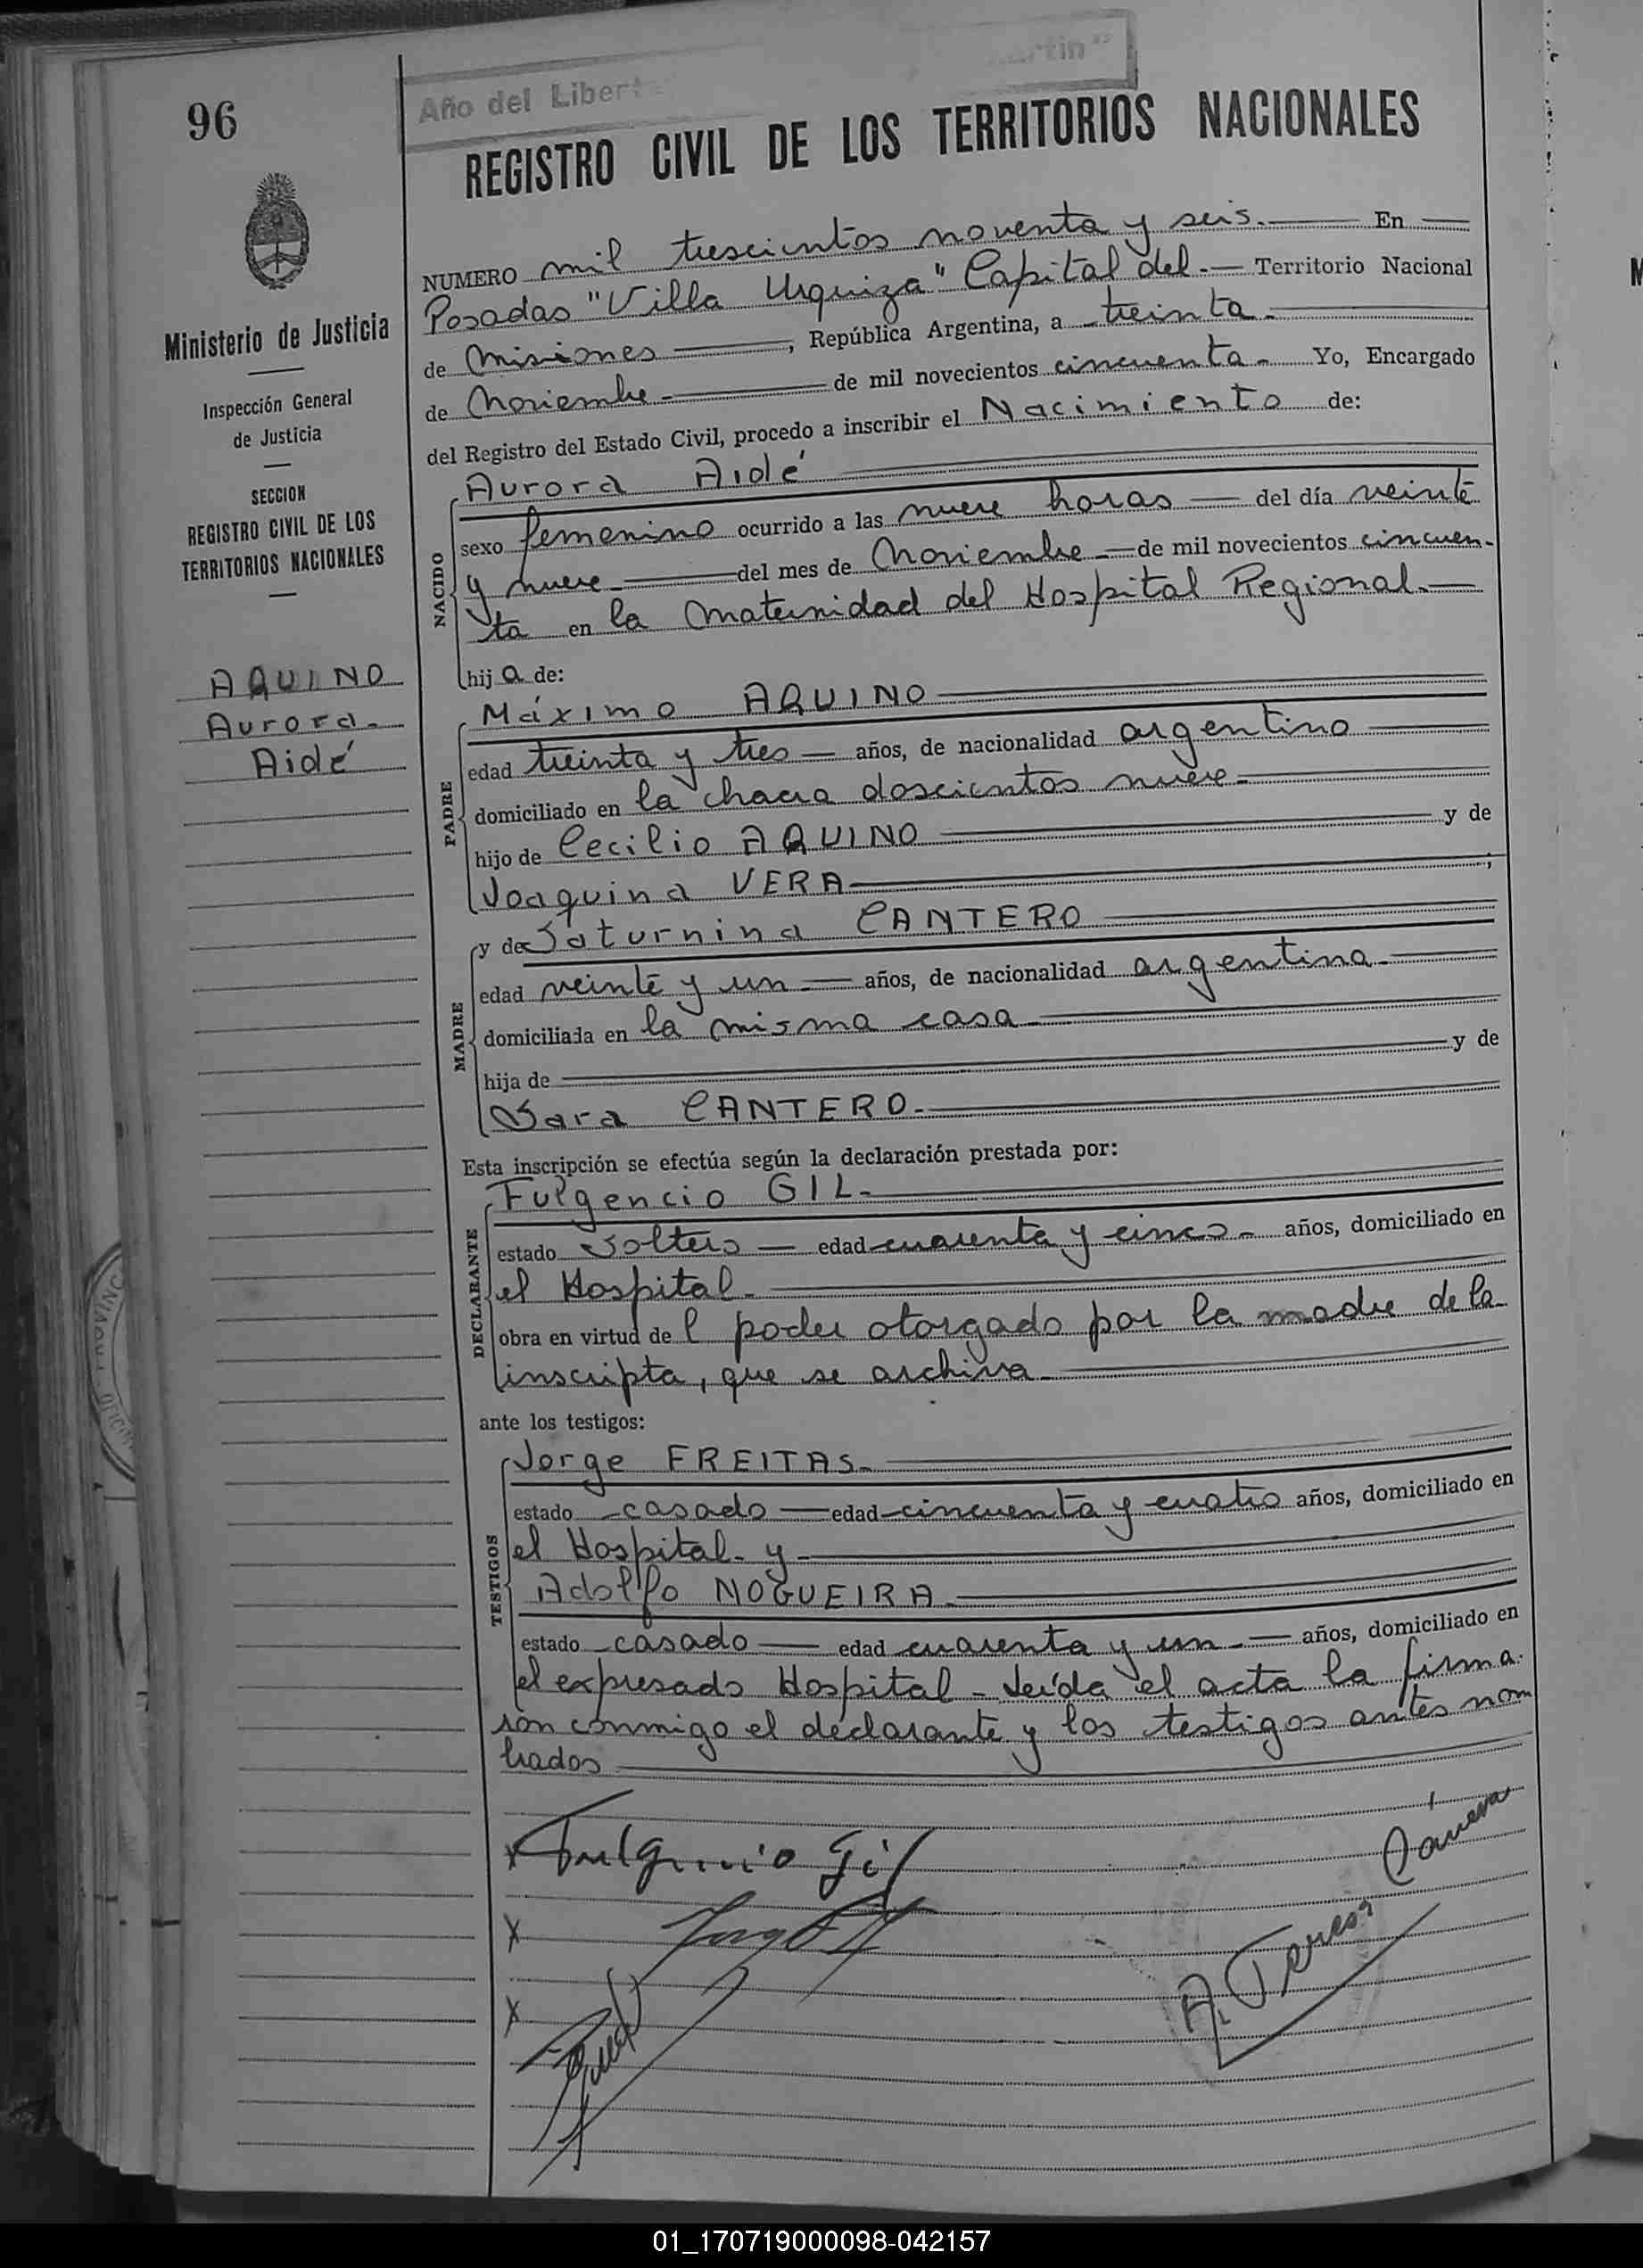 96
Año del Libert
artin"
REGISTRO CIVIL DE LOS TERRITORIOS NACIONALES
Ministerio de Justicia
Inspección General
de Justicia
SECCION
REGISTRO CIVIL DE LOS
TERRITORIOS NACIONALES
AQUINO
Aurora
Aidé
NUMERO mil trescientos noventa y seis. En
Posadas "Villa Urquiza" Capital del Territorio Nacional
de Misiones, República Argentina, a treinta
de Noviembre de mil novecientos cincuenta Yo, Encargado
del Registro del Estado Civil, procedo a inscribir el Nacimiento de:
NACIDO
Aurora Aidé
sexo femenino ocurrido a las nueve horas del día veinte
y nueve del mes de Noviembre de mil novecientos cincuen-
ta en la Maternidad del Hospital Regional.
hija de:
PADRE
Máximo AQUINO
edad treinta y tres años, de nacionalidad argentino
domiciliado en la chacra doscientos nueve
hijo de Cecilio AQUINO y de
Joaquina VERA;
MADRE
y de Saturnina CANTERO
edad veinte y un años, de nacionalidad argentina
domiciliada en la misma casa
hija de y de
Sara CANTERO.
Esta inscripción se efectúa según la declaración prestada por:
DECLARANTE
Fulgencio GIL
estado soltero edad cuarenta y cinco años, domiciliado en
el Hospital
obra en virtud del poder otorgado por la madre de la
inscripta, que se archiva
ante los testigos:
TESTIGOS
Jorge FREITAS
estado casado edad cincuenta y cuatro años, domiciliado en
el Hospital y
Adolfo NOGUEIRA
estado casado edad cuarenta y un años, domiciliado en
el expresado Hospital - Leída el acta la firma
ron conmigo el declarante y los testigos antes nom
brados
x Fulgencio Gil
x
x
A. Teresa
01_170719000098-042157